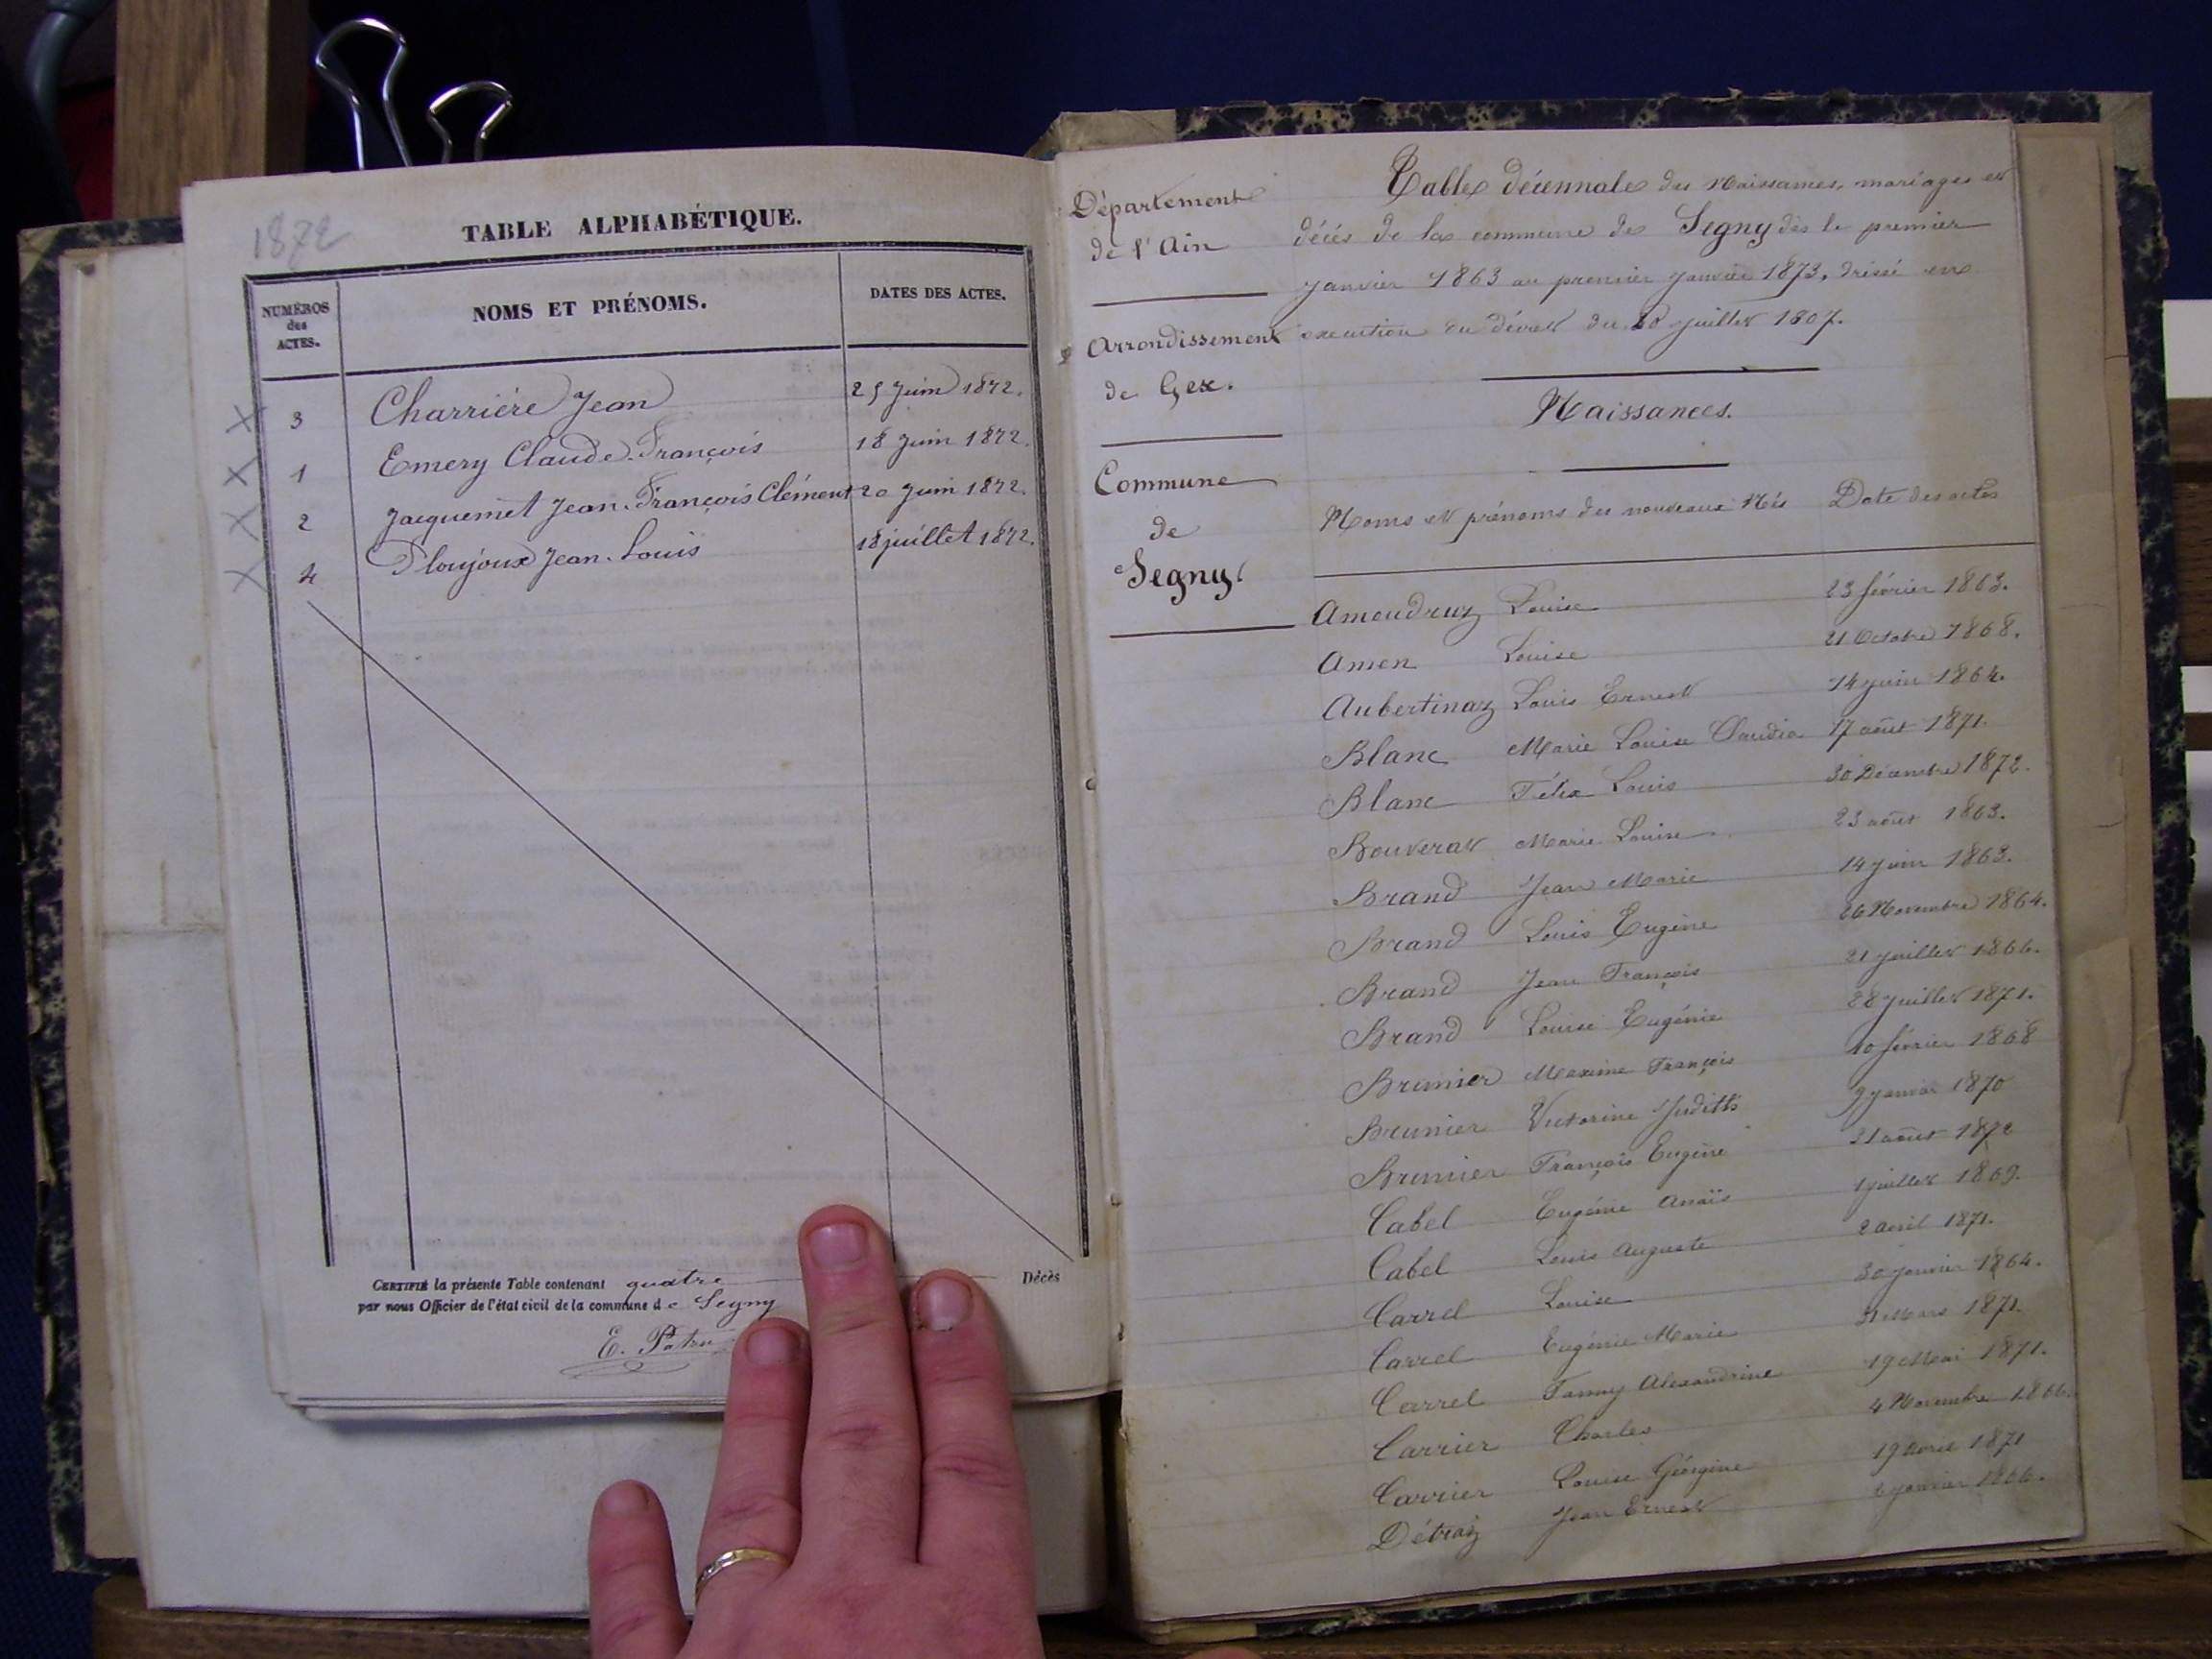 1872
TABLE ALPHABÉTIQUE.
NUMÉROS des ACTES. NOMS ET PRÉNOMS. DATES DES ACTES.
3 Charrière Jean 25 Juin 1872.
1 Emery Claude-François 18 Juin 1872.
2 Jacquemet Jean-François Clément 20 Juin 1872.
4 Ploujoux Jean-Louis 18 juillet 1872.
CERTIFIÉ la présente Table contenant quatre Décès
par nous Officier de l'état civil de la commune de Segny
E. Patru
Département
de l'Ain
Arrondissement
de Gex.
Commune
de
Segny.
Table décennale des Naissances, mariages et
décès de la commune de Segny dès le premier
janvier 1863 au premier janvier 1873, dressé en
execution du décret du 20 juillet 1807.
Naissances.
Noms et prénoms des nouveaux Nés Date des actes
Amoudruz Louise 23 février 1863.
Amen Louise 21 Octobre 1868.
Aubertinaz Louis Ernest 14 juin 1864.
Blanc Marie Louise Claudia 17 août 1871.
Blanc Félix Louis 30 Décembre 1872.
Bouverat Marie Louise 23 août 1863.
Brand Jean Marie 14 juin 1863.
Brand Louis Eugène 26 Novembre 1864.
Brand Jean François 21 juillet 1866.
Brand Louise Eugénie 28 juillet 1871.
Brunier Maxime François 10 février 1868
Brunier Victorine Judith 9 janvier 1870
Brunier François Eugène 21 août 1872
Cabel Eugénie Anaïs 1 juillet 1869.
Cabel Louis Auguste 2 avril 1871.
Carrel Louise 30 janvier 1864.
Carrel Eugénie Marie 31 Mars 1871.
Carrel Fanny Alexandrine 19 Mai 1871.
Carrier Charles 4 Novembre 1866.
Carrier Louise Géorgine 19 Avril 1871
Détraz Jean Ernest 6 janvier 1866.